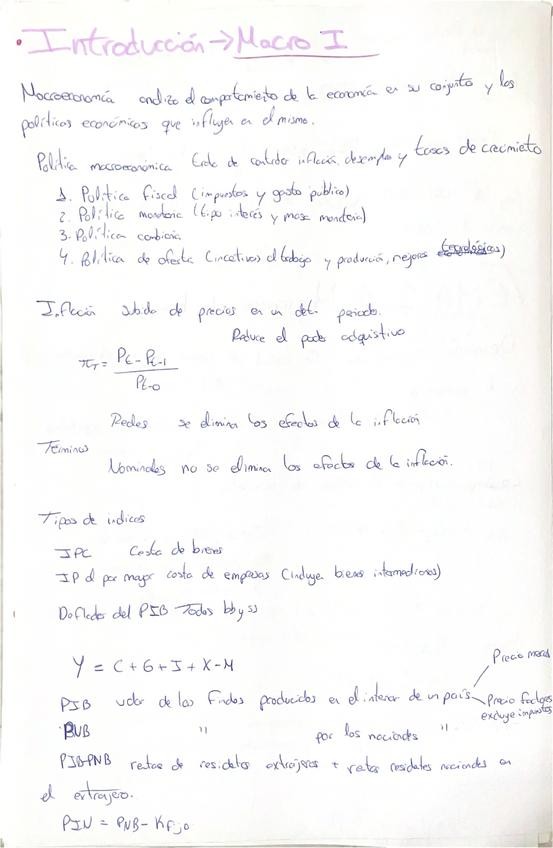 • Introducción → Macro I
Macroeconomía analiza el comportamiento de la economía en su conjunto y las
políticas económicas que influyen en el mismo.
Política macroeconómica trata de controlar inflación, desempleo y tasas de crecimiento
1. Política fiscal (impuestos y gasto público)
2. Política monetaria (tipo interés y masa monetaria)
3. Política cambiaria
4. Política de oferta (incentivos al trabajo y producción, mejoras tecnológicas)
Inflación subida de precios en un det. periodo.
Reduce el poder adquisitivo
πT = Pt - Pt-1 / Pt-0
Reales se elimina los efectos de la inflación
Términos
Nominales no se elimina los efectos de la inflación.
Tipos de indices
IPC Cesta de bienes
IP al por mayor cesta de empresas (incluye bienes intermedios)
Deflactor del PIB Todos bb y ss
Y = C + G + I + X - M
Precio merca
PIB valor de los finales producidos en el interior de un país
Precio factores
excluye impuestos
PNB " por los nacionales "
PIB-PNB rentas de residentes extranjeros + rentas residentes nacionales en
el extranjero.
PIN = PNB - K fijo